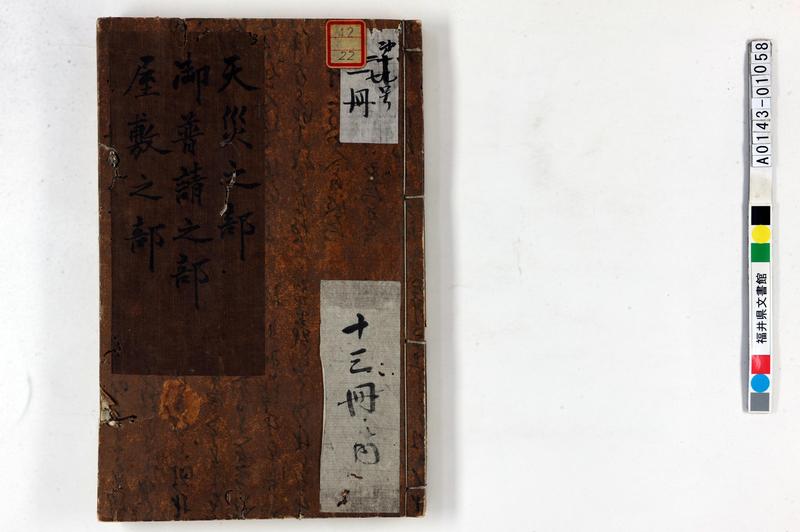 天災之部
御普請之部
屋敷之部
M2
22
一冊
十三冊之内
A0143-01058
福井県文書館